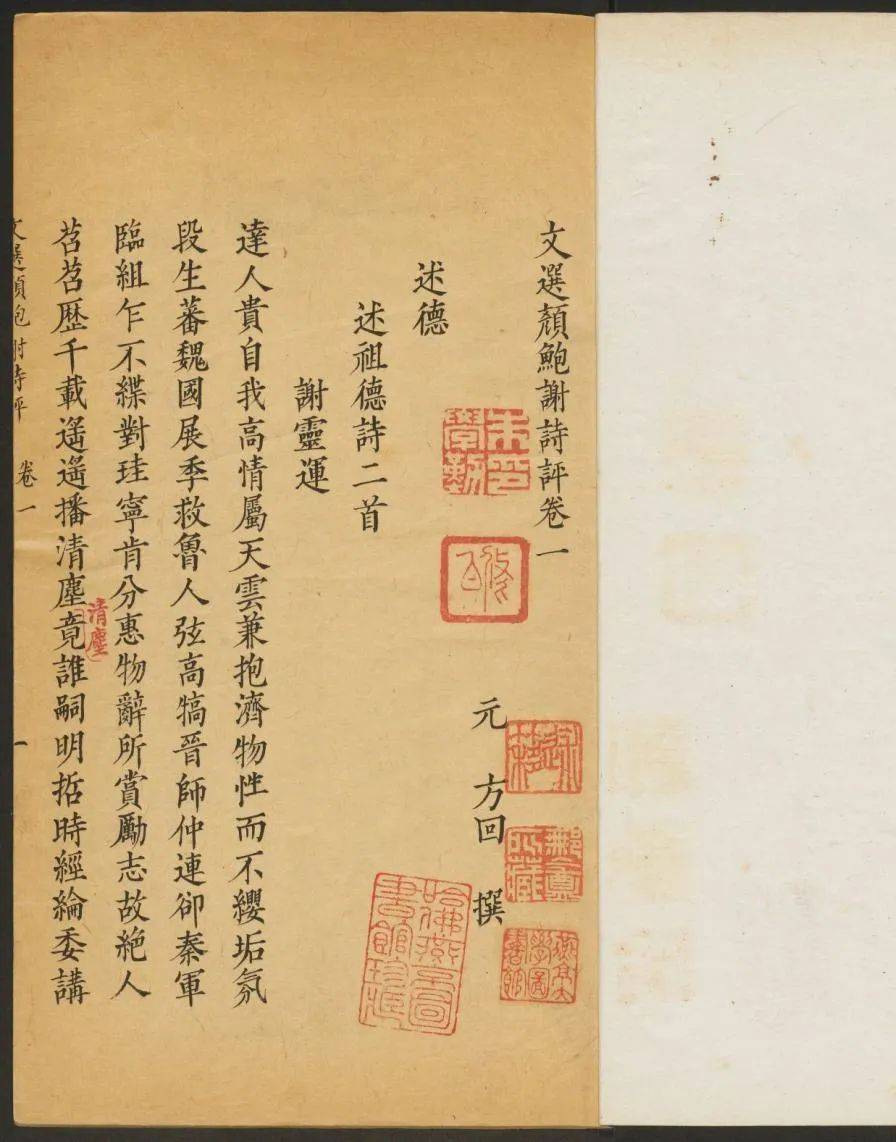 文選顏鮑謝詩評卷一
元 方回 撰
述德
述祖德詩二首
謝靈運
達人貴自我高情屬天雲兼抱濟物性而不纓垢氛
段生蕃魏國展季救魯人弦高犒晉師仲連卻秦軍
臨組乍不緤對珪寧肯分惠物辭所賞勵志故絶人
苕苕歷千載遥遥播清塵竟誰嗣明哲時經綸委講
清塵
文選顏鮑謝詩評 卷一 一
朱學勤印
修伯
郝勳所藏
燕京大學圖書館
哈佛燕京圖書館珍藏